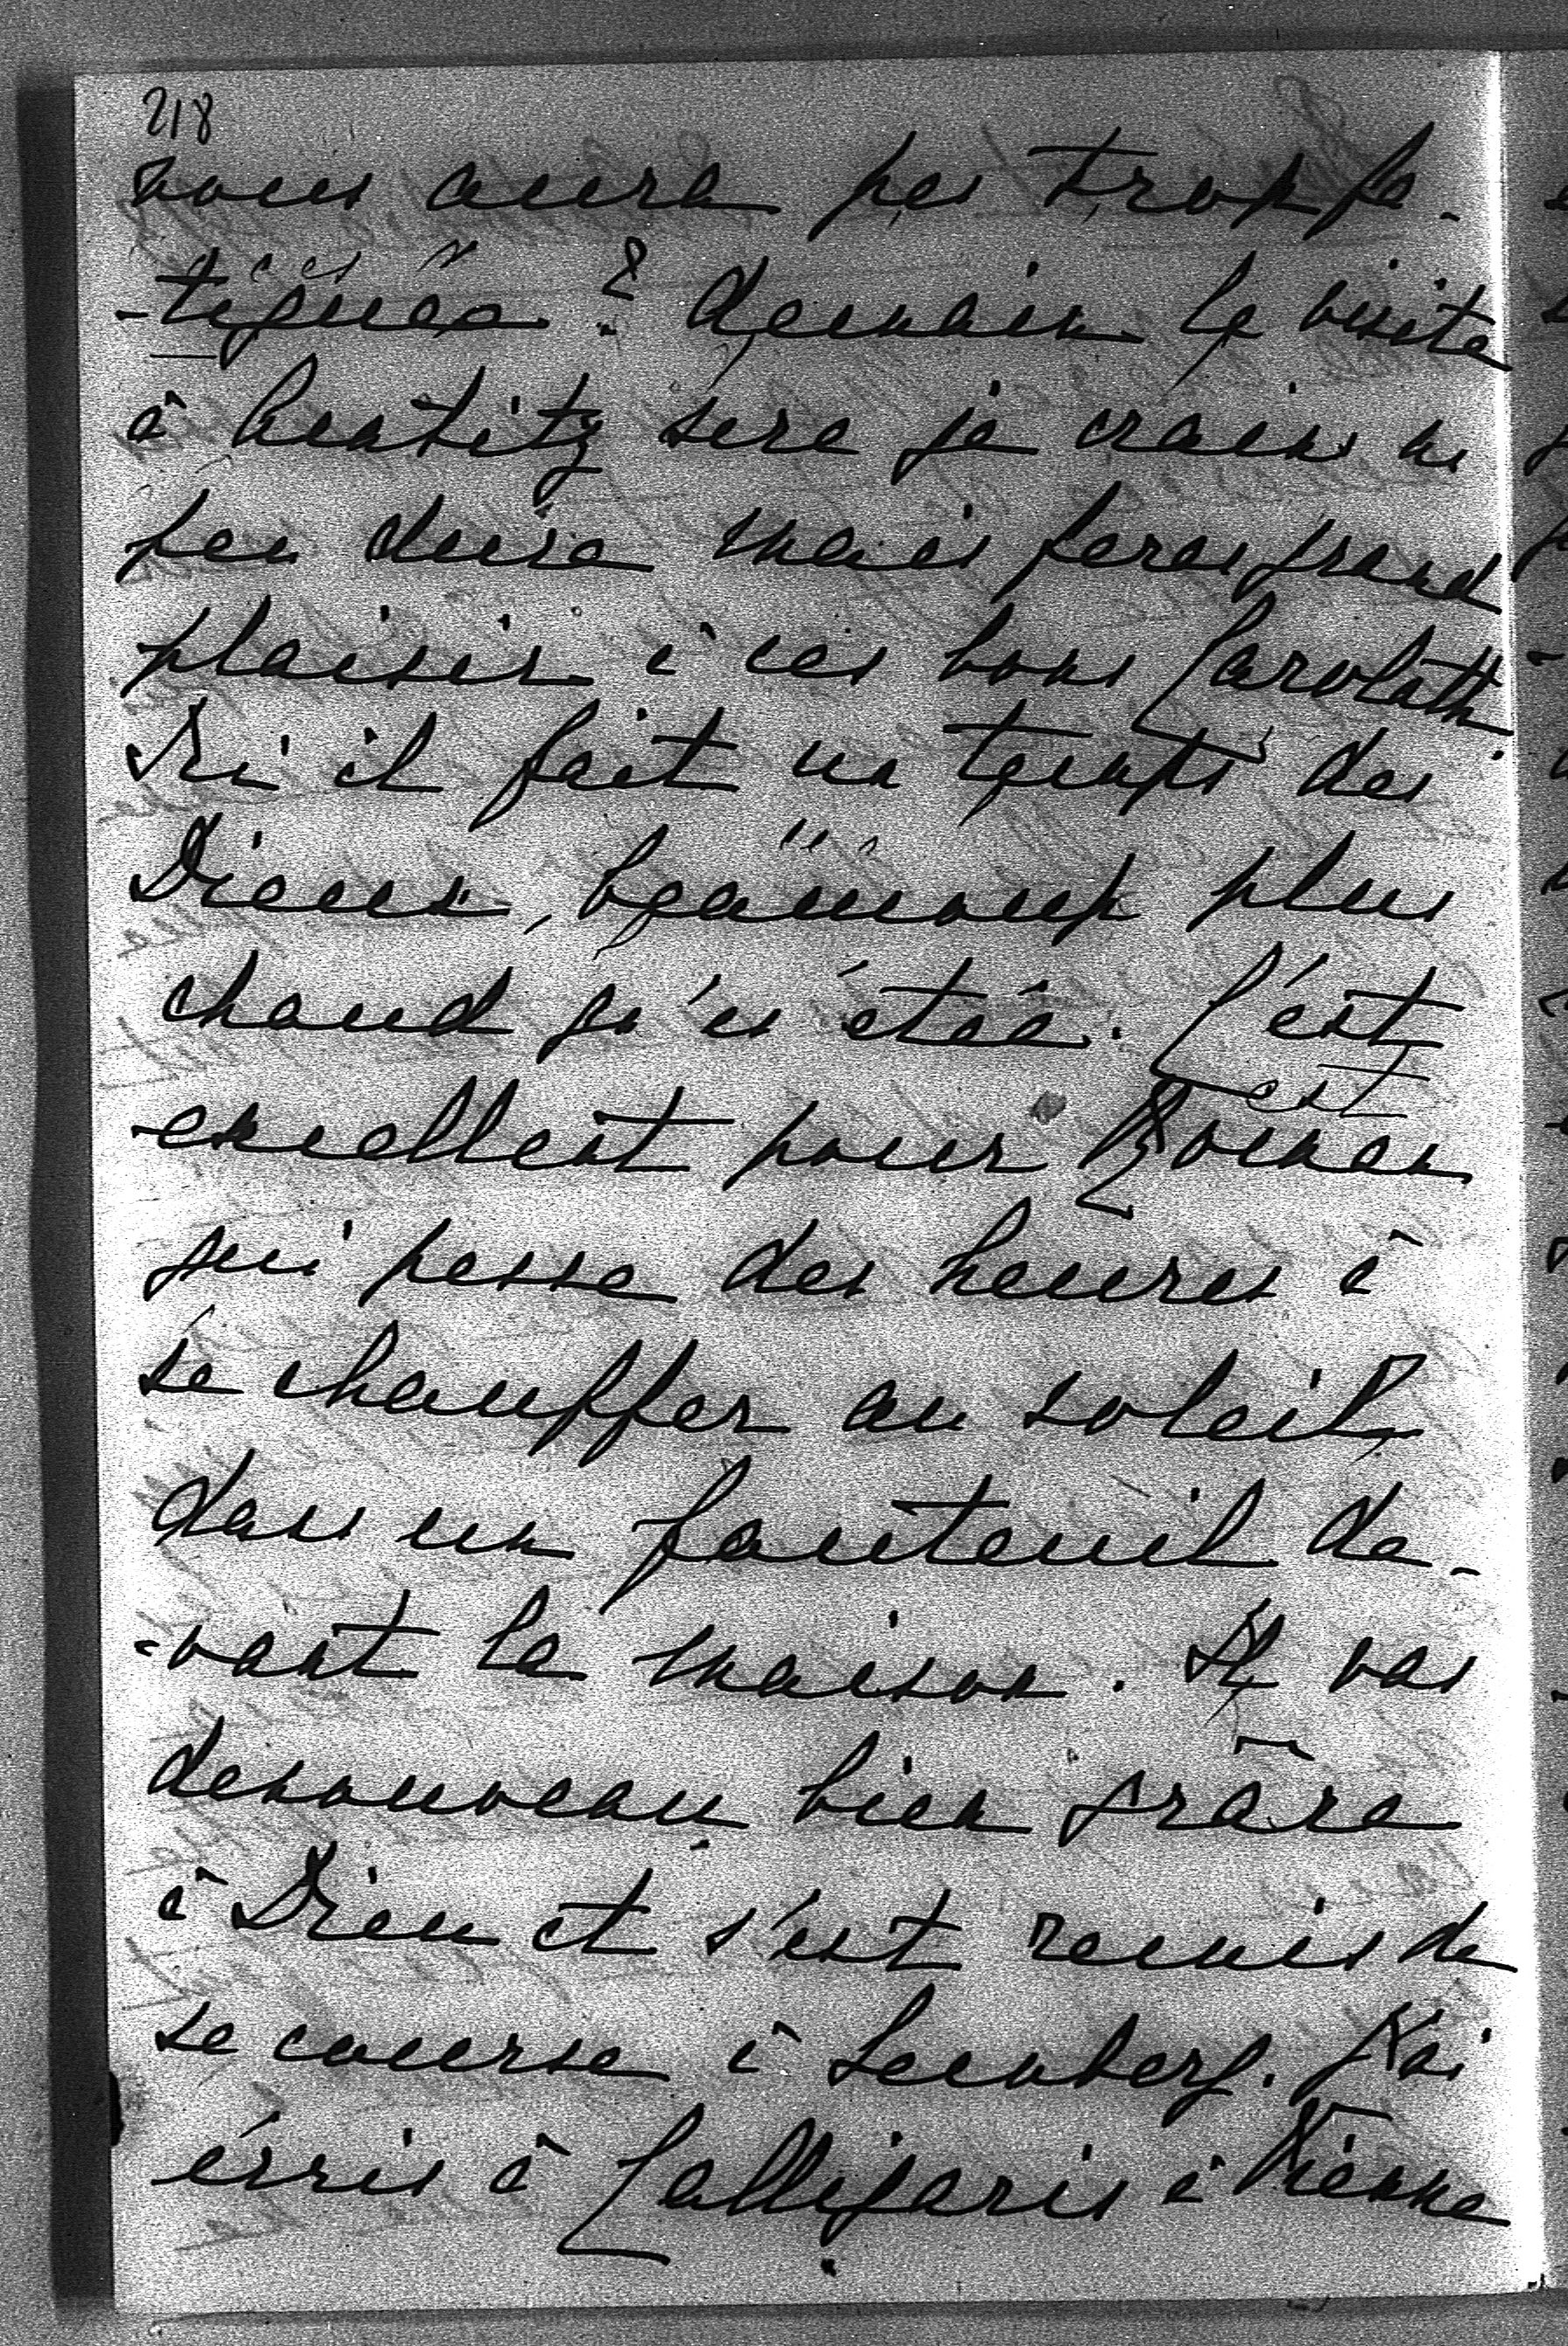 218
vous aura pas trop fa-
-tiguée ? demain la visite
à sera je crains un
peu dure mais feras grand
plaisir à ces bons Carolath.
Ici il fait un temps des
Dieux, beaucoup plus
chaud qu'en étéé. C'est
excellent pour Roman
qui passe des heures à
se chauffer au soleil
dans un fauteuil de-
-vant la maison. Il vas
denouveau bien grâce
à Dieu et s'est remis de
sa course à Lemberg. J'ai
écris à Calligaris à Vienne